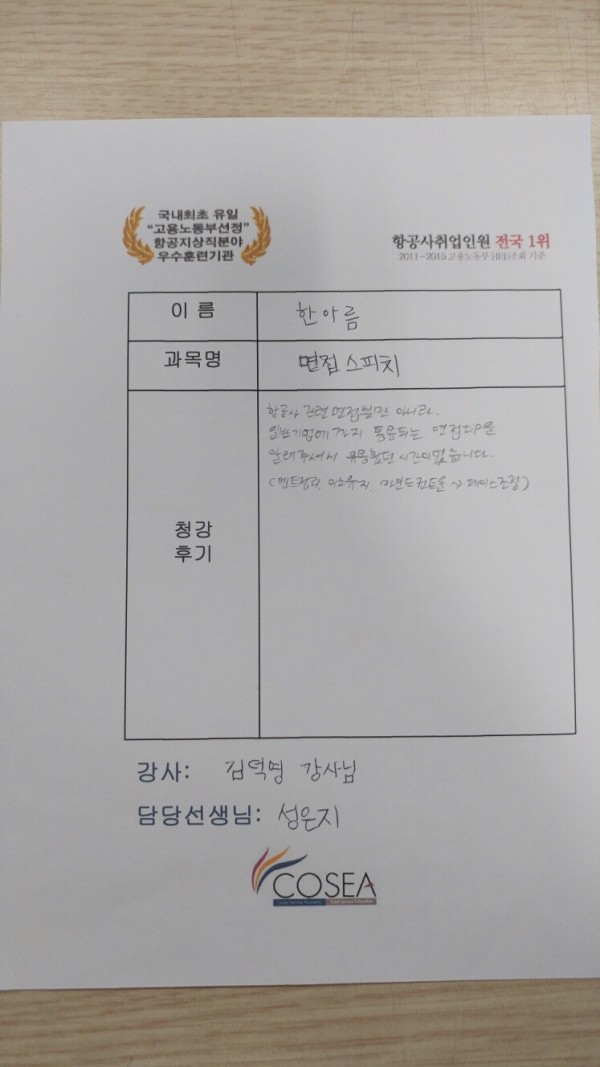 국내최초 유일
"고용노동부선정"
항공지상직분야
우수훈련기관
항공사취업인원 전국 1위
2011~2015 고용노동부 HRD조회 기준
이 름
한아름
과목명
면접스피치
청강
후기
항공사 관련 면접뿐만 아니라,
일반기업에까지 통용되는 면접 TIP을
알려주셔서 유용했던 시간이었습니다.
(멘트정리, 미소유지, 마인드컨트롤 → 페이스조절)
강사: 김덕명 강사님
담당선생님: 성은지
COSEA